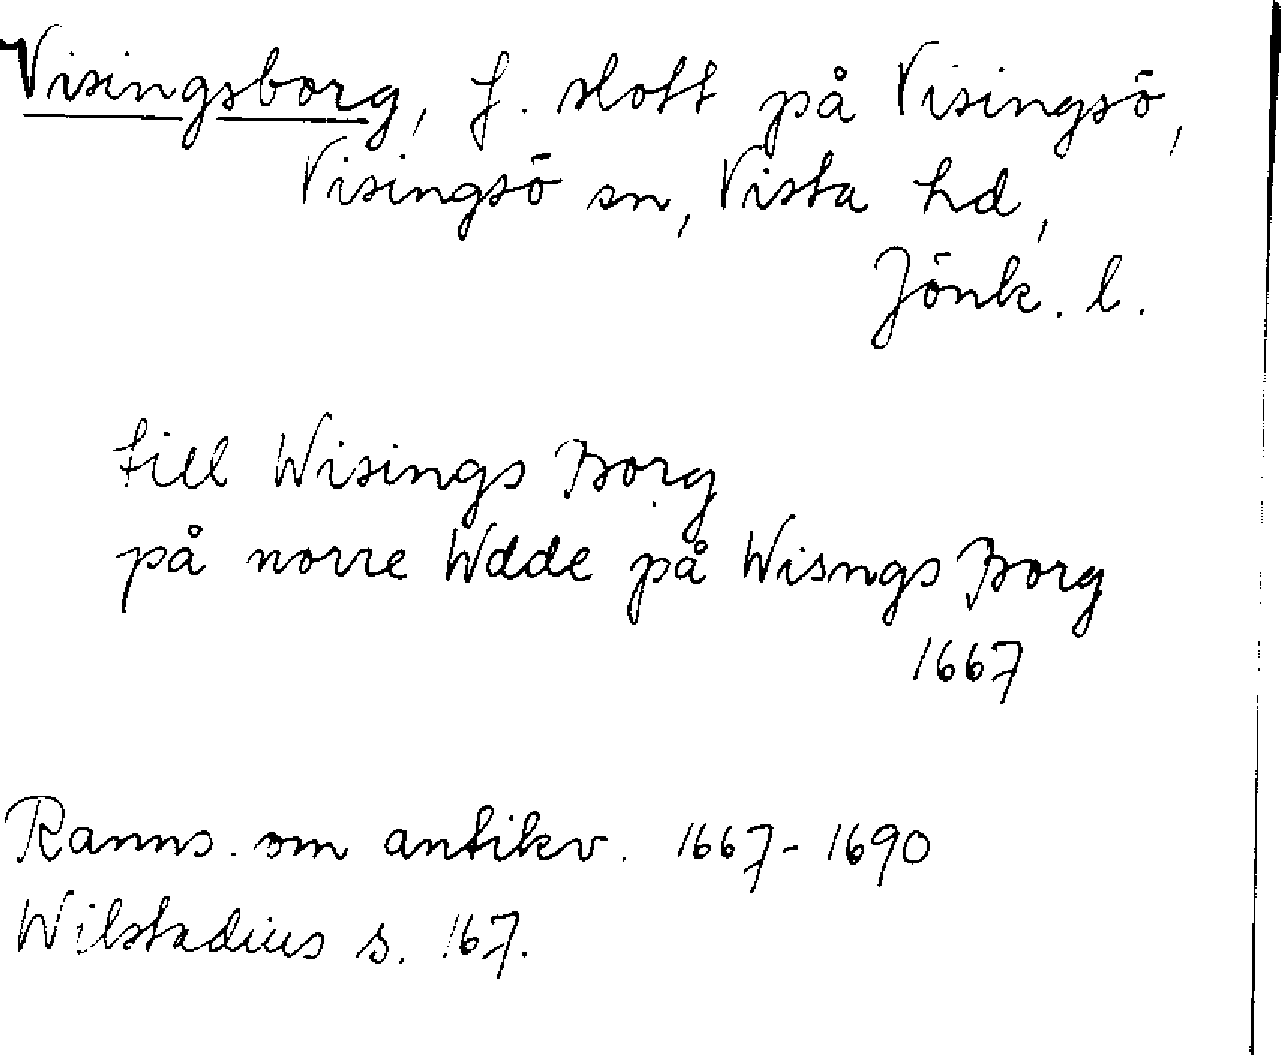 Visingsborg, f. slott på Visingsö,
Visingsö sn, Vista hd,
Jönk. l.
till Wisings Borg
på norre Wdde på Wisngs Borg
1667
Ranns. om antikv. 1667-1690
Wilstadius s. 167.